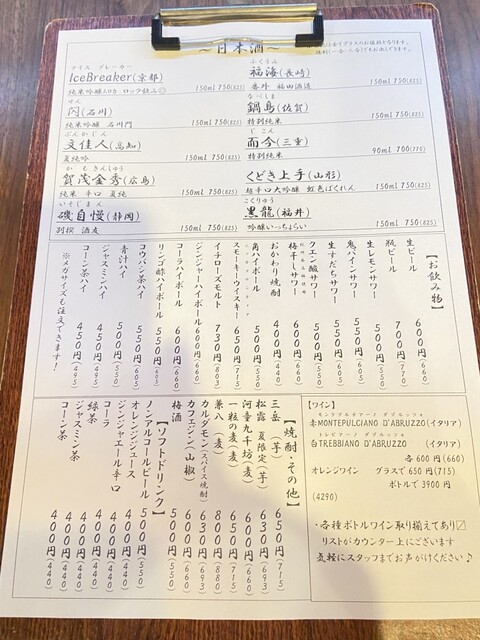 ~日本酒~
アイス ブレーカー
IceBreaker(京都)
純米吟醸入りロック飲み◎ 150ml 750(825)
せん
閃(石川)
純米吟醸 石川門 150ml 750(825)
ぶんかじん
文佳人(高知)
夏純吟 150ml 750(825)
かもきんしゅう
賀茂金秀(広島)
純米 辛口 夏純 150ml 750(825)
いそじまん
磯自慢(静岡)
別撰 150ml 750(825)
ふくうみ
福海(長崎)
番外 福田酒造 150ml 750(825)
なべしま
鍋島(佐賀)
特別純米 150ml 750(825)
じこん
而今(三重)
特別純米 90ml 700(770)
くどき上手(山形)
超辛口大吟醸 虹色ばくれん 150ml 750(825)
こくりゅう
黒龍(福井)
吟醸いっちょらい 150ml 750(825)
【お飲み物】
生ビール 600円(660)
瓶ビール 700円(770)
生レモンサワー 550円(605)
鬼バインサワー 550円(605)
生すだちサワー 550円(605)
クエン酸サワー 500円(550)
梅干しサワー 600円(660)
おかわり焼酎 400円(440)
角ハイボール 500円(550)
スモーキーウイスキー 650円(715)
イチローズモルト 730円(803)
ジンジャーハイボール 600円(660)
コーラハイボール 600円(660)
リンゴ酢ハイボール 550円(605)
コウバシ茶ハイ 550円(605)
青汁ハイ 500円(550)
ジャスミンハイ 450円(495)
コーン茶ハイ 450円(495)
※メガサイズも注文できます!
【焼酎・その他】
三岳 (芋) 650円(715)
松露 夏限定(芋) 630円(693)
河童九千坊(麦) 600円(660)
一粒の麦(麦) 650円(715)
兼八(麦) 800円(880)
カルダモン(スパイス焼酎) 630円(693)
カフェジン「山椒」 600円(660)
梅酒 500円(550)
【ソフトドリンク】
ノンアルコールビール 500円(550)
オレンジジュース 400円(440)
ジンジャエール辛口 400円(440)
コーラ 400円(440)
緑茶 400円(440)
ジャスミン茶 400円(440)
コーン茶 400円(440)
【ワイン】
モンテプルチアーノ ダブルッツォ
赤MONTEPULCIANO D'ABRUZZO (イタリア)
トレビアーノ ダブルッツォ
白TREBBIANO D'ABRUZZO (イタリア)
各600円(660)
オレンジワイン グラスで650円(715)
ボトルで3900円
(4290)
・各種ボトルワイン取り揃えてあり〼
リストがカウンター上にございます
気軽にスタッフまでお声がけください♪